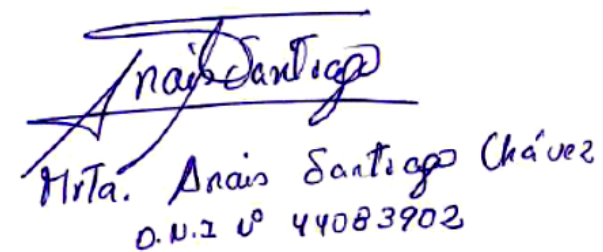 Anais Santiago
Mrta. Anais Santiago Chávez
D.N.I Nº 44083902